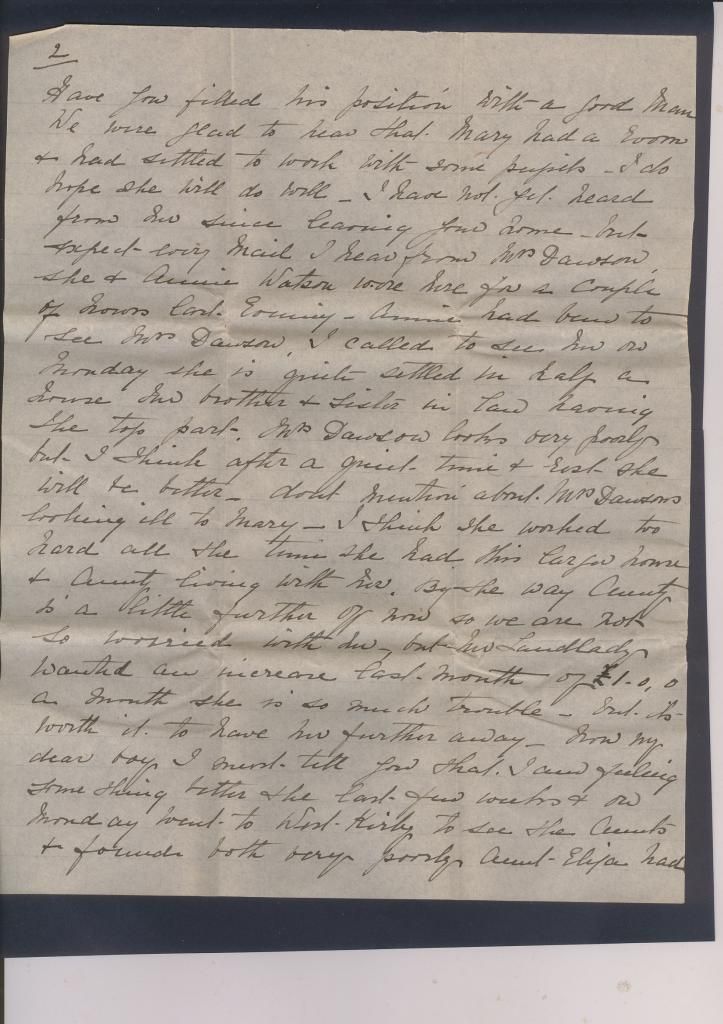 2
Have you filled his position with a good man
We were glad to hear that Mary had a room
& had settled to work with some pupils - I do
hope she will do well - I have not yet heard
from her since leaving your home - but
expect every mail I hear from Mrs Dawson,
she & Annie Watson were here for a couple
of hours last Evening - Annie had been to
see Mrs Dawson, I called to see her on
Monday she is quite settled in half a
house her brother & sister in law having
the top part. Mrs Dawson looks very poorly
but I think after a quiet time & rest she
will be better - dont mention about Mrs Dawsons
looking ill to Mary - I think she worked too
hard all the time she had this large house
& Aunty living with her. By the way Aunty
is a little further off now so we are not
so worried with her, but her Landlady
wanted an increase last month of £1-0,0
a month she is so much trouble - but its
worth it to have her further away - Now my
dear boy I must tell you that I am feeling
some thing better the last few weeks & on
Monday went to West Kirby to see the Aunts
& found both very poorly Aunt Eliza had